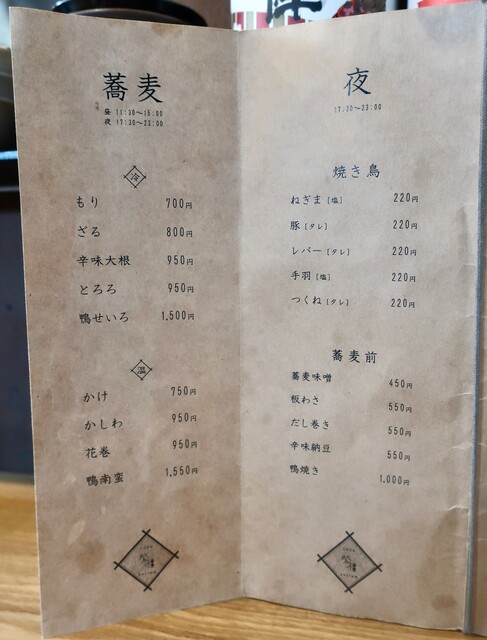 蕎麦
昼 11:30〜15:00
夜 17:30〜23:00
冷
もり 700円
ざる 800円
辛味大根 950円
とろろ 950円
鴨せいろ 1,500円
温
かけ 750円
かしわ 950円
花巻 950円
鴨南蛮 1,550円
夜
17:30〜23:00
焼き鳥
ねぎま [塩] 220円
豚 [タレ] 220円
レバー [タレ] 220円
手羽 [塩] 220円
つくね [タレ] 220円
蕎麦前
蕎麦味噌 450円
板わさ 550円
だし巻き 550円
辛味納豆 550円
鴨焼き 1,000円